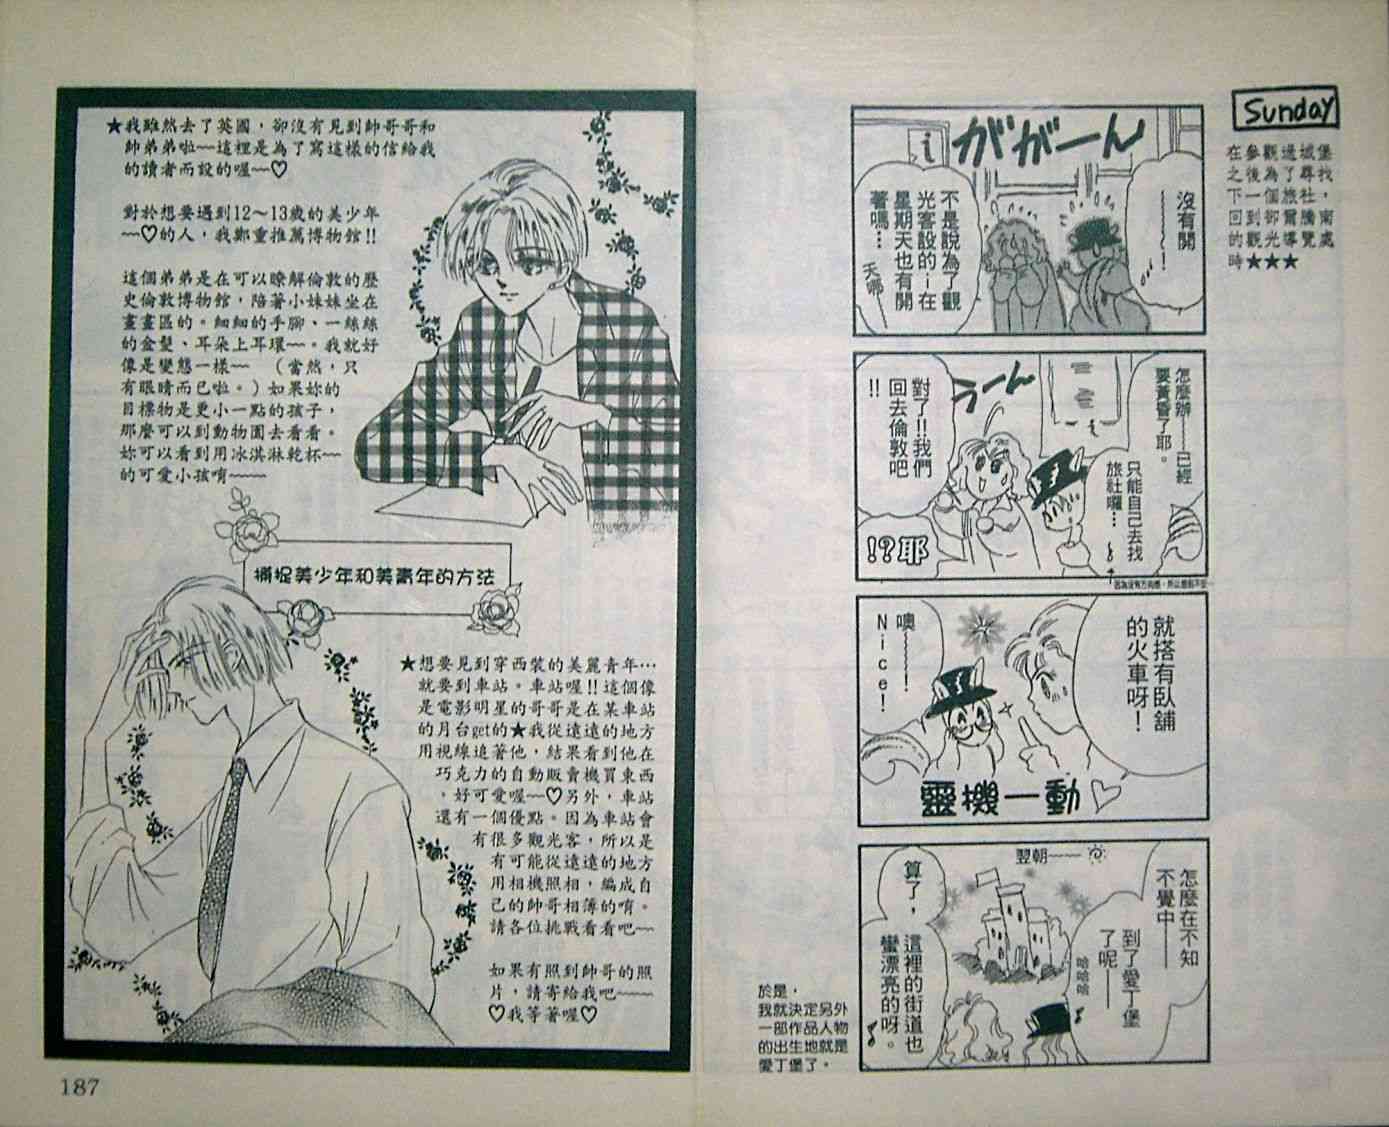 Sunday
在參觀過城堡
之後為了尋找
下一個旅社，
回到卻爾騰南
的觀光導覽處
時★★★
ががーん
i
沒有開
──────！
不是說為了觀
光客設的i在
星期天也有開
著嗎…
天哪
怎麼辦──已經
要黃昏了耶。
只能自己去找
旅社囉…
うーん
對了!!我們
回去倫敦吧
!!
!?耶
就搭有臥舖
的火車呀！
噢──────！
Nice！
靈機一動♡
翌朝──
怎麼在不知
不覺中──
到了愛丁堡
了呢──
哈哈哈
算了，這裡的街道也
蠻漂亮的呀。
於是，
我就決定另外
一部作品人物
的出生地就是
愛丁堡了。
★我雖然去了英國，卻沒有見到帥哥哥和
帥弟弟啦──這裡是為了寫這樣的信給我
的讀者而設的喔──♡
對於想要遇到12～13歲的美少年
──♡的人，我鄭重推薦博物館!!
這個弟弟是在可以瞭解倫敦的歷
史倫敦博物館，陪著小妹妹坐在
畫畫區的。細細的手腳、一絲絲
的金髮、耳朵上耳環──。我就好
像是變態一樣──　（當然，只
有眼睛而已啦。）如果妳的
目標物是更小一點的孩子，
那麼可以到動物園去看看。
妳可以看到用冰淇淋乾杯──
的可愛小孩唷────
捕捉美少年和美青年的方法
★想要見到穿西裝的美麗青年…
就要到車站。車站喔!!這個像
是電影明星的哥哥是在某車站
的月台get的★我從遠遠的地方
用視線追著他，結果看到他在
巧克力的自動販賣機買東西
，好可愛喔──♡另外，車站
還有一個優點。因為車站會
有很多觀光客，所以是
有可能從遠遠的地方
用相機照相，編成自
己的帥哥相薄的唷。
請各位挑戰看看吧──
如果有照到帥哥的照
片，請寄給我吧───
♡我等著喔♡
187